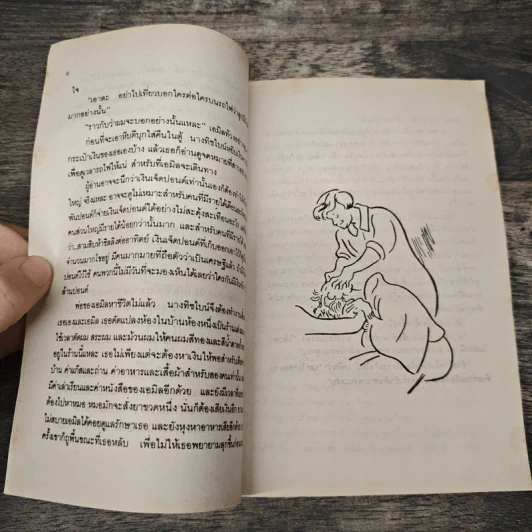 ๖
ใจ
"เอาละ อย่าไปเที่ยวบอกใครต่อใครบนรถไฟว่าลูกมี
มากอย่างนั้น"
"ราวกับว่าผมจะบอกอย่างนั้นแหละ" เอมิลทำ
ก่อนที่จะเอาหีบดีบุกใส่คืนในตู้ นางทิชไบน์หยิบ
กระเป๋าเงินของเธอเองบ้าง แล้วเธอก็อ่านดูจดหมายที่
เพื่อดูเวลารถไฟให้แน่ สำหรับที่เอมิลจะเดินทาง
ผู้อ่านอาจจะนึกว่าเงินเจ็ดปอนด์เท่านั้นเองก็ต้องทำ
ใหญ่ จริงแหละ อาจจะดูไม่เหมาะสำหรับคนที่มีรายได้เดือนละ
พันปอนด์ก็จ่ายเงินเจ็ดปอนด์ได้อย่างไม่สะดุ้งสะเทือนอะไร แต่
คนส่วนใหญ่มีรายได้น้อยกว่านั้นมาก และสำหรับคนที่มีรายได้
ว่า..สามสิบห้าชิลลิงต่ออาทิตย์ เงินเจ็ดปอนด์ที่เก็บออมเอาไว้
จำนวนมากโขอยู่ มีคนมากมายที่ถือตัวว่าเป็นเศรษฐีแล้ว ถ้า
ปอนด์ไว้ใช้ คนพวกนี้ไม่มีวันที่จะมองเห็นได้เลยว่าใครกันมีเงิน
ล้านปอนด์
พ่อของเอมิลหาชีวิตไม่แล้ว นางทิชไบน์จึงต้องทำงาน
เธอเองและเอมิล เธอดัดแปลงห้องในบ้านห้องหนึ่งเป็นร้าน
ใช้เวลาตัดผม สระผม และม้วนผมให้คนผมสีทองและสีน้ำตาล
อยู่ในร้านนี้แหละ เธอไม่เพียงแต่จะต้องหาเงินให้พอสำหรับ
บ้าน ค่าแก๊สและถ่าน ค่าอาหารและเสื้อผ้าสำหรับสองคนเท่านั้น
มีค่าเล่าเรียนและค่าหนังสือของเอมิลอีกด้วย และยังมีเวลาที่
ต้องไปหาหมอ หมอมักจะสั่งยาขวดหนึ่ง นั่นก็ต้องเสียเงินอีก
ไม่สบายเอมิลได้คอยดูแลรักษาเธอ และยังหุงหาอาหาร
ครั้งเขาก็ถูพื้นขณะที่เธอหลับ เพื่อไม่ให้เธอพยายามลุกขึ้น